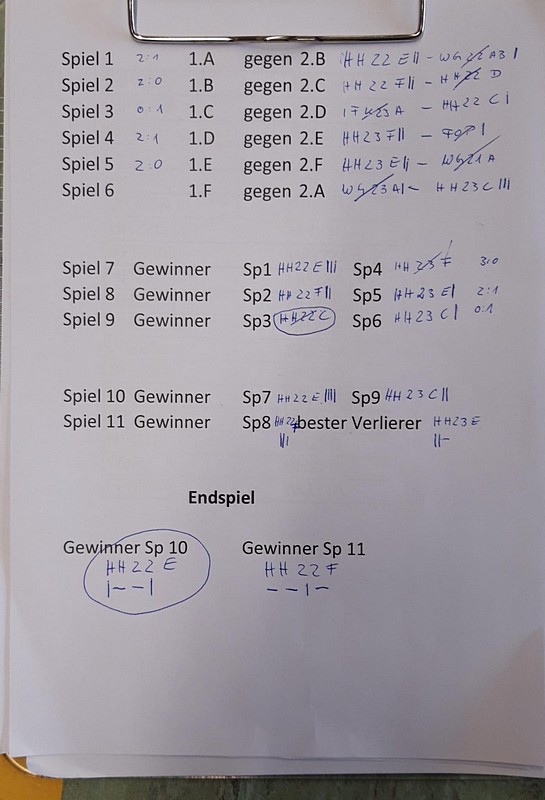 Spiel 1 2:1 1.A gegen 2.B HH 22 E II - WG 22 AB I
Spiel 2 2:0 1.B gegen 2.C HH 22 F II - HH 22 D
Spiel 3 0:1 1.C gegen 2.D IFK23 A - HH 22 C I
Spiel 4 2:1 1.D gegen 2.E HH23 F II -
Spiel 5 2:0 1.E gegen 2.F HH23 E II - WG21A
Spiel 6 1.F gegen 2.A WG23 A I - HH23C III
Spiel 7 Gewinner Sp1 HH22 E III Sp4 HH 23 F 3:0
Spiel 8 Gewinner Sp2 HH 22 F II Sp5 HH 23 E I 2:1
Spiel 9 Gewinner Sp3 HH22C Sp6 HH23 C I 0:1
Spiel 10 Gewinner Sp7 HH22 E IIII Sp9 HH 23 C II
Spiel 11 Gewinner Sp8 HH22F bester Verlierer HH23E
III II-
Endspiel
Gewinner Sp 10 Gewinner Sp 11
HH 22 E HH 22 F
I--I --I-